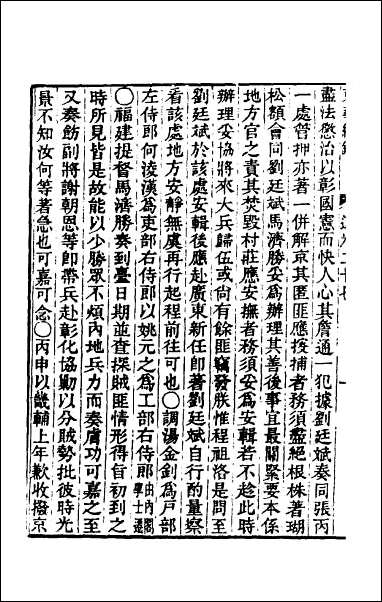 盡法懲治以彰國憲而快人心其詹通一犯據劉廷斌奏同張丙
一處管押亦著一併解京其匿匪應捜捕者務須盡絕根株著瑚
松額會同劉廷斌馬濟勝妥爲辦理其善後事宜最關緊要本係
地方官之責其焚毀村莊應安撫者務須妥爲安輯若不趁此時
辦理妥協將來大兵歸伍或尚有餘匪竊發朕惟程祖洛是問至
劉廷斌於該處安輯後應赴廣東新任卽著劉廷斌自行酌量察
看該處地方安靜無虞再行起程前往可也〇調湯金釗爲戶部
左侍郎何淩漢爲吏部右侍郎以姚元之爲工部右侍郎由內閣學士遷
〇福建提督馬濟勝奏到臺日期並查探賊匪情形得旨初到之
時所見皆是故能以少勝眾不煩內地兵力而奏膚功可嘉之至
又奏飭副將謝朝恩等卽帶兵赴彰化協勦以分賊勢批彼時光
景不知汝何等著急也可嘉可念〇丙申以畿輔上年歉收撥京